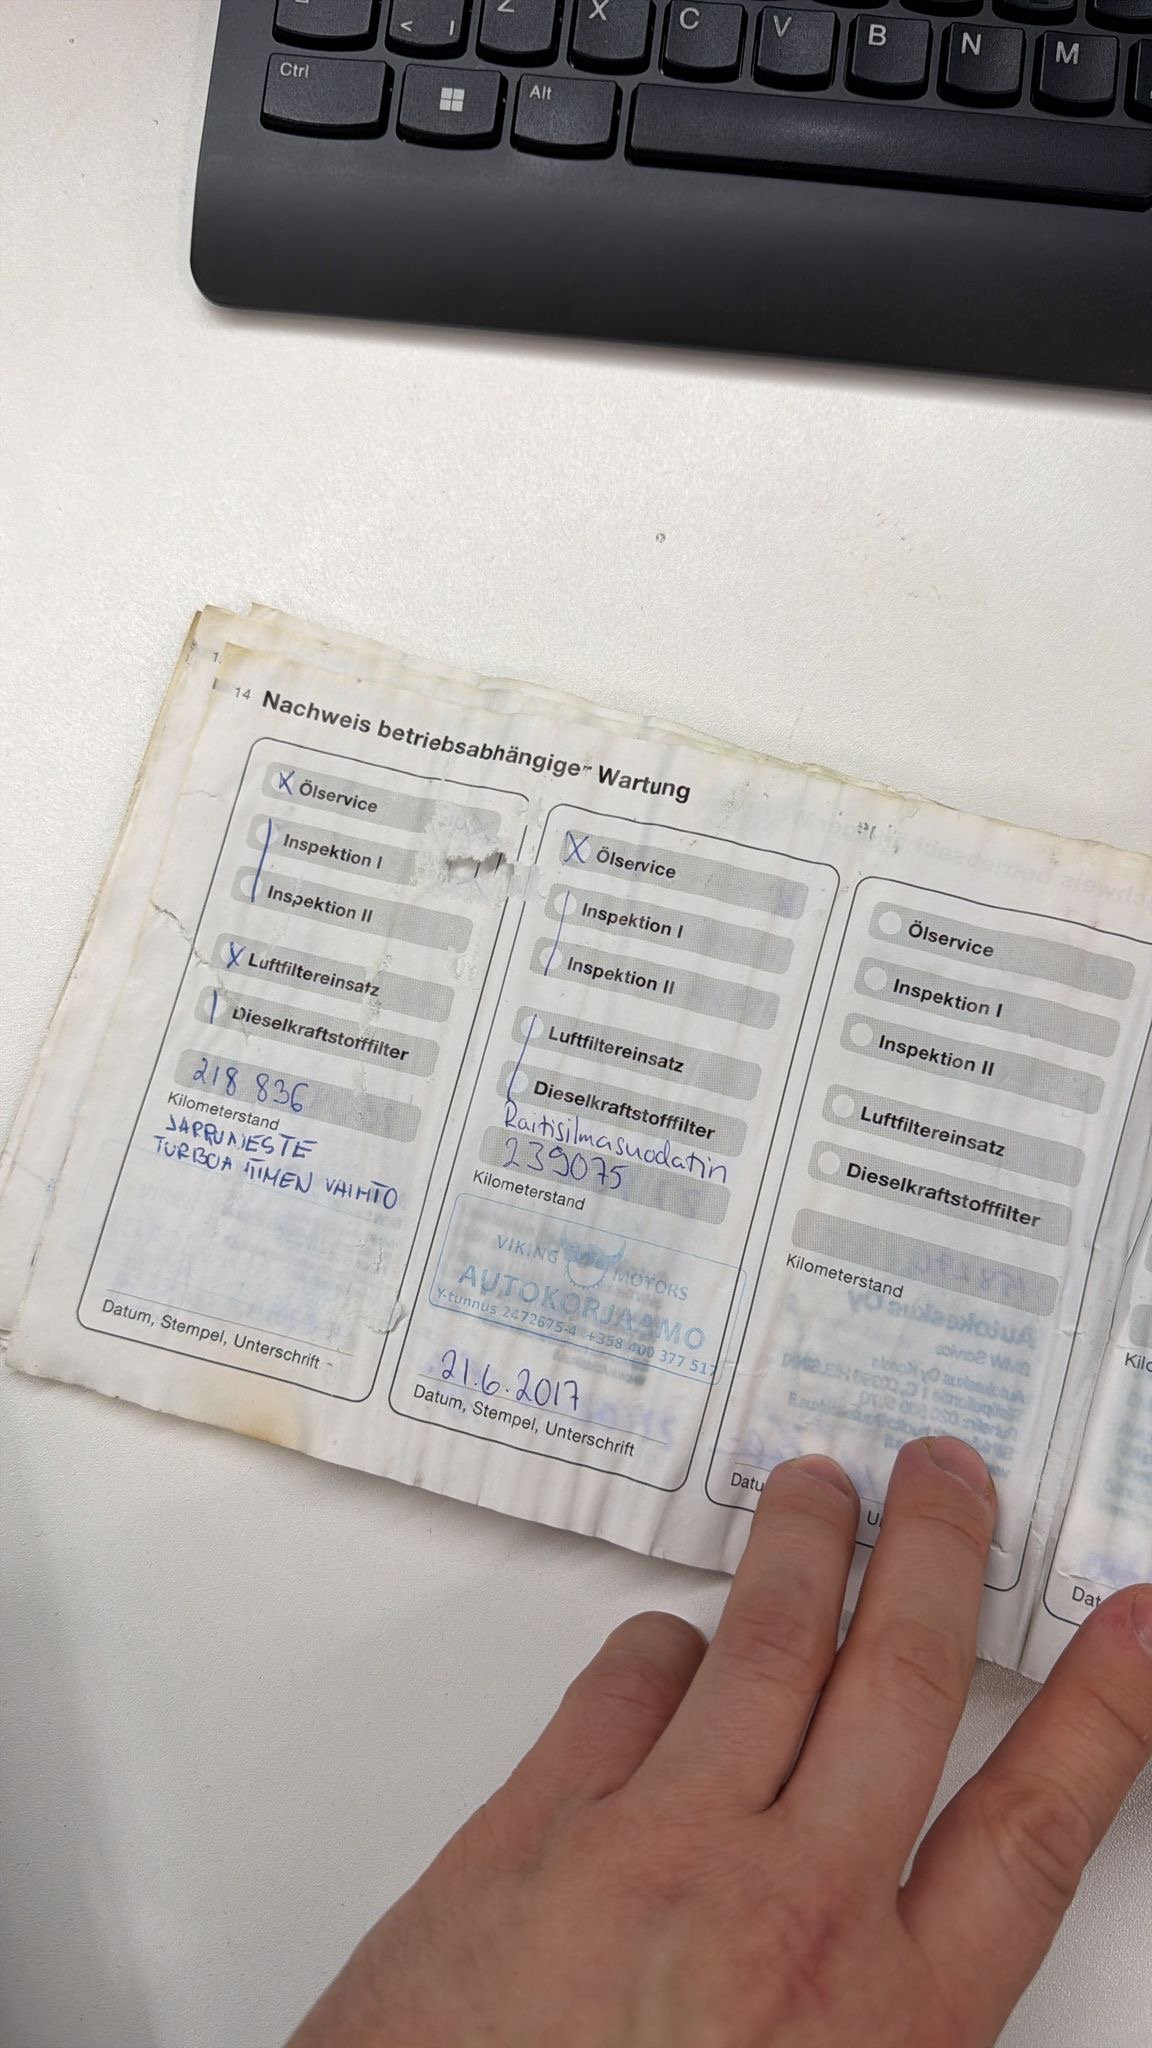 Z X C V B N M
< |
Ctrl Alt
14 Nachweis betriebsabhängiger Wartung
X Ölservice
Inspektion I
Inspektion II
X Luftfiltereinsatz
Dieselkraftstofffilter
218 836
Kilometerstand
JARRUNESTE
TURBOAHTIMEN VAIHTO
Datum, Stempel, Unterschrift
X Ölservice
Inspektion I
Inspektion II
Luftfiltereinsatz
Dieselkraftstofffilter
Raitisilmasuodatin
239075
Kilometerstand
VIKING MOTORS
AUTOKORJAAMO
Y-tunnus 2472675-4 +358 400 377 517
21.6.2017
Datum, Stempel, Unterschrift
Ölservice
Inspektion I
Inspektion II
Luftfiltereinsatz
Dieselkraftstofffilter
Kilometerstand